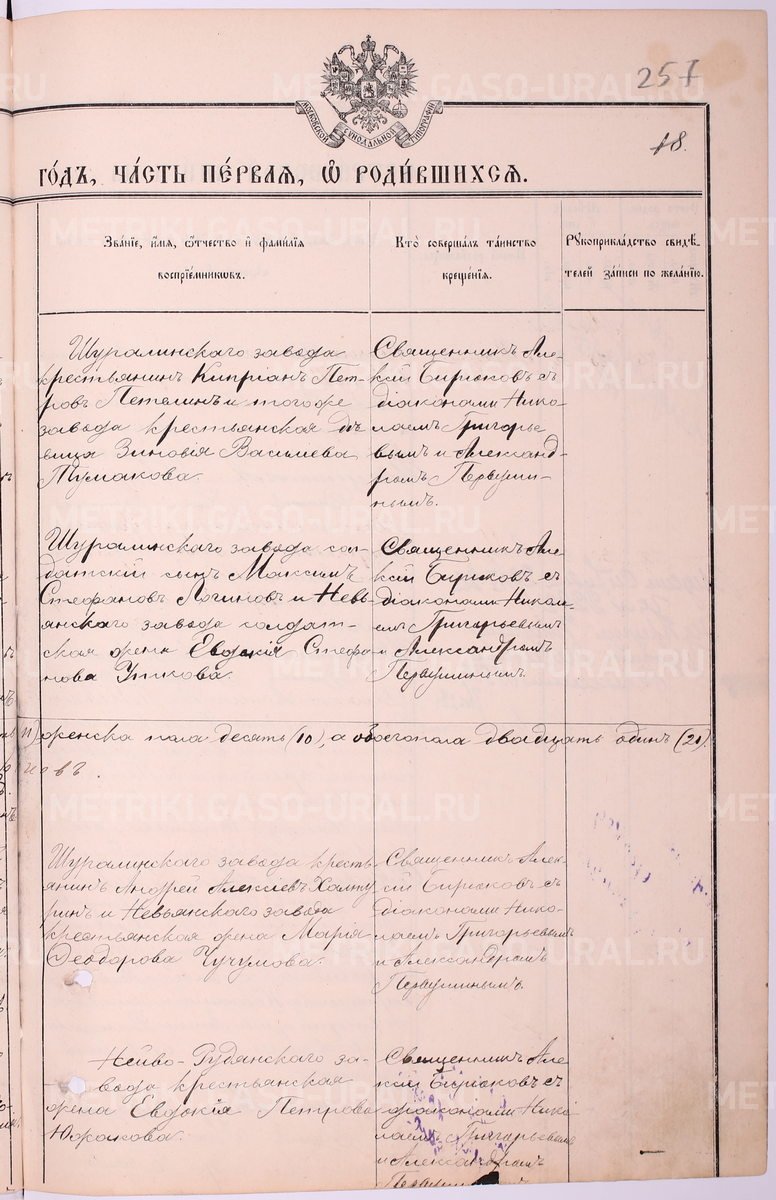 257
18.
МОСКОВСКОЙ СѴНОДАЛЬНОЙ ТИПОГРАФІИ
го́дъ, ча́сть пе́рвая, ѡ҆ роди́вшихся.
Зва́нїе, и҆́мя, ѻ҆́тчество и҆ фами́лїя
воспрїе́мникѡвъ.
Кто̀ соверша́лъ та́инство
креще́нїя.
Рꙋкоприкла́дство свидѣ́-
телей за́писи по жела́нїю.
Шуралинскаго завода
крестьянинъ Кипріанъ Пет-
ровъ Петелинъ и тогоже
завода крестьянская дѣ-
вица Зиновія Василіева
Тумакова.
Священникъ Але-
ксій Бирюковъ съ
діаконами Нико-
лаемъ Григорье-
вымъ и Александ-
ромъ Первуши-
нымъ.
Шуралинскаго завода сол-
датскій сынъ Максимъ
Стефановъ Логиновъ и Невь-
янскаго завода солдат-
ская жена Евдокія Стефа-
нова Уткова.
Священникъ Але-
ксій Бирюковъ съ
діаконами Никол-
емъ Григорьевымъ
и Александромъ
Первушинымъ.
11) женска пола десять (10), а обоегопола двадцать одинъ (21).
новъ.
Шуралинскаго завода кресть-
янинъ Андрей Алексіевъ
и Невьянскаго завода
крестьянская жена Марія
Ѳеодорова Чучумова.
Священникъ Алек-
сій Бирюковъ съ
діаконами Нико-
лаемъ Григорьевымъ
и Александромъ
Первушинымъ.
Нейво-Рудянскаго за-
вода крестьянская
жена Евдокія Петрова
Юракова.
Священникъ Але-
ксій Бирюковъ съ
діаконами Нико-
лаемъ Григорьевымъ
и Александромъ
Первушинымъ
METRIKI.GASO-URAL.RU